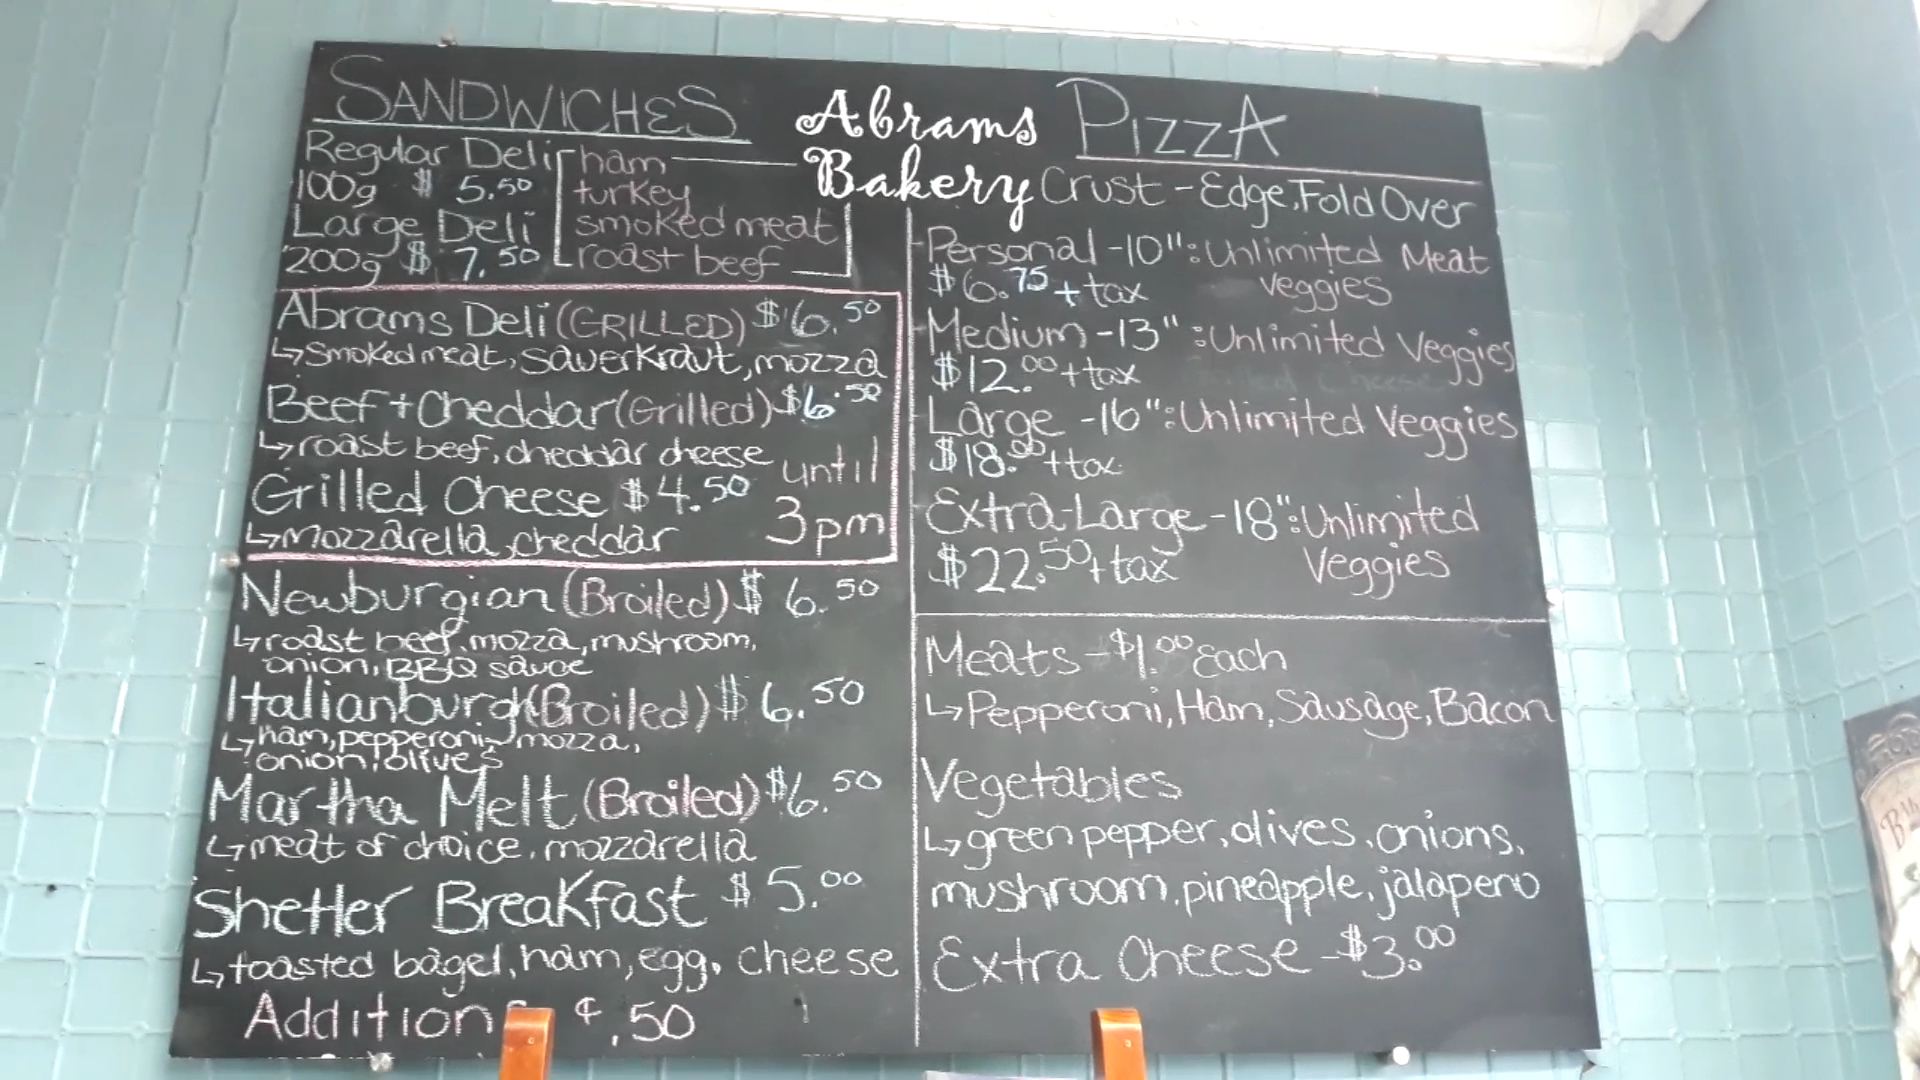 SANDWICHES
Regular Deli
100g $ 5.50
Large Deli
200g $ 7.50
ham
turkey
smoked meat
roast beef
Abrams Deli (GRILLED) $6.50
↳ smoked meat, sauerkraut, mozza
Beef + Cheddar (Grilled) $6.50
↳ roast beef, cheddar cheese
Grilled Cheese $4.50
↳ mozzarella, cheddar
until
3pm
Newburgian (Broiled) $ 6.50
↳ roast beef, mozza, mushroom,
onion, BBQ sauce
Italianburgh (Broiled) $ 6.50
↳ ham, pepperoni, mozza,
onion, olives
Martha Melt (Broiled) $6.50
↳ meat of choice, mozzarella
Shetler Breakfast $ 5.00
↳ toasted bagel, ham, egg, cheese
Addition ¢ .50
Abrams
Bakery
PIZZA
Crust - Edge, Fold Over
Personal - 10" : Unlimited Meat
$6.75 + tax Veggies
Medium - 13" : Unlimited Veggies
$12.00 + tax
Large - 16" : Unlimited Veggies
$18.00 + tax
Extra-Large - 18" : Unlimited
$22.50 + tax Veggies
Meats - $1.00 Each
↳ Pepperoni, Ham, Sausage, Bacon
Vegetables
↳ green pepper, olives, onions,
mushroom, pineapple, jalapeno
Extra Cheese - $3.00